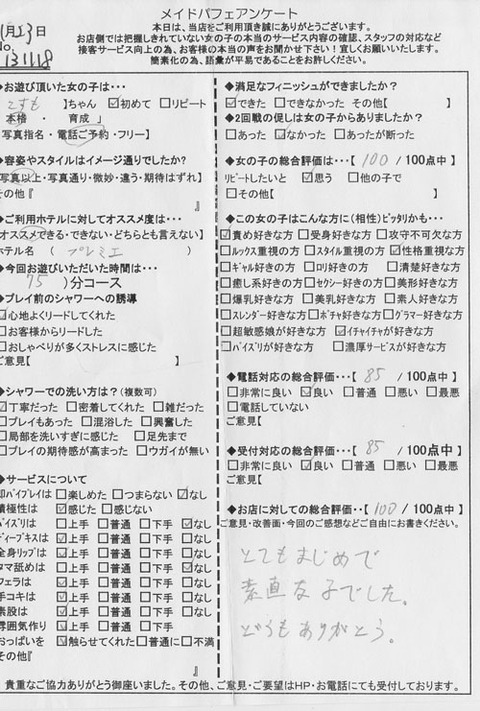 メイドパフェアンケート
本日は、当店をご利用頂き誠にありがとうございます。
お店側では把握しきれていない女の子の本当のサービス内容の確認、スタッフの対応など
接客サービス向上の為、お客様の本当の声をお聞かせ下さい！宜しくお願いいたします。
簡素化の為、語彙が平易であることをお許しください。
月23日
No.
131118
◆お遊び頂いた女の子は・・・
】ちゃん ☑初めて □リピート
本格・ 育成 」
写真指名・電話ご予約・フリー】
◆容姿やスタイルはイメージ通りでしたか?
写真以上・写真通り・微妙・違う・期待はずれ】
その他『 』
◆ご利用ホテルに対してオススメ度は・・・
オススメできる・できない・どちらとも言えない】
ホテル名 （ プレミエ ）
◆今回お遊びいただいた時間は・・・
75 )分コース
◆プレイ前のシャワーへの誘導
☑心地よくリードしてくれた
□お客様からリードした
□おしゃべりが多くストレスに感じた
ご意見【 】
◆シャワーでの洗い方は？(複数可)
☑丁寧だった □密着してくれた □雑だった
□プレイもあった □混浴した □興奮した
□局部を洗いすぎに感じた □足先まで
□プレイの期待感が高まった □ウガイが無い
◆サービスについて
即バイブレイは □楽しめた □つまらない ☑なし
積極性は ☑感じた □感じない
パイズリは □上手 □普通 □下手 ☑なし
ディープキスは ☑上手 □普通 □下手 □なし
全身リップは □上手 □普通 □下手 □なし
タマ舐めは □上手 □普通 □下手 ☑なし
フェラは ☑上手 □普通 □下手 □なし
手コキは ☑上手 □普通 □下手 □なし
素股は ☑上手 □普通 □下手 □なし
雰囲気作り ☑上手 □普通 □下手 □なし
おっぱいを ☑触らせてくれた □普通に □不満
その他『 』
◆満足なフィニッシュができましたか？
☑できた □できなかった その他【 】
◆2回戦の促しは女の子からありましたか？
□あった ☑なかった □あったが断った
◆女の子の総合評価は・・・【 100 / 100点中】
リピートしたいと ☑思う □他の子で
□その他【 】
◆この女の子はこんな方に(相性)ピッタリかも・・・
☑責め好きな方 □受身好きな方 □攻守不可欠な方
□ルックス重視の方 □スタイル重視の方 ☑性格重視な方
□ギャル好きの方 □ロリ好きの方 □清楚好きな方
□癒し系好きの方 □セクシー好きの方 □美形好きな方
□爆乳好きな方 □美乳好きな方 □素人好きな方
□スレンダー好きな方 □ポチャ好きな方 □グラマー好きな方
□超敏感娘が好きな方 ☑イチャイチャが好きな方
□パイズリが好きな方 □濃厚サービスが好きな方
◆電話対応の総合評価・・・【 85 / 100点中】
□非常に良い ☑良い □普通 □悪い □最悪
□電話していない
ご意見【 】
◆受付対応の総合評価・・・【 85 / 100点中】
□非常に良い ☑良い □普通 □悪い □最悪
ご意見【 】
◆お店に対しての総合評価・・【 100 / 100点中】
ご意見・改善面・今回のご感想などご自由にお書きください。
とてもまじめで
素直な子でした。
どうもありがとう。
貴重なご協力ありがとう御座いました。その他、ご意見・ご要望はHP・お電話にても受付しております。